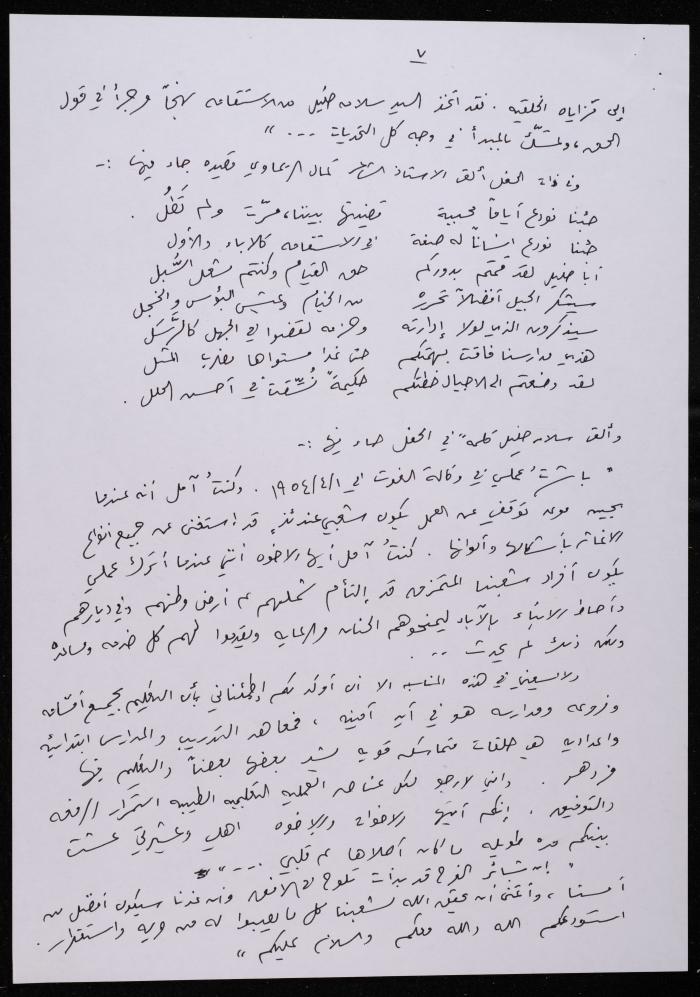 ٧
إلى مزاياه الخلقيه . لقد اتخذ السيد سلامه خليل من الاستقامه نهجاً وجرأ في قول
الحق، وتمسّك بالمبدأ في وجه كل التحديات ... "
وفي ذات الحفل ألقى الاستاذ الشاعر كمال الريماوي قصيده جاء فيها :-
جئنا نودع أياماً محببة قضيتها بيننا، مرّت ولم تَطُلُ .
جئنا نودع إنساناً له صفة في الاستقامه كالآباء والأول
أبا خليل لقد قمتم بدوركم حق القيام وكنتم مشعل السُّبل
سيشكر الجيل أفضالاً تحرره من الخيام وعيش البؤس والخجل
سيذكرون الذي لولا إدارته وحزمه لقضوا في الجهل كالهَمَل
هذي مدارسنا فاقت بهمتكم حتى غدا مستواها مضرب المثل
لقد وضعتم الى الاجيال خطتكم حكيمةً نُسِّقت في أحسن الحلل .
وألقى سلامه خليل كلمةً في الحفل جاء فيها :-
" باشرتُ عملي في وكالة الغوث في ١٩٥٤/٤/١ . وكنتُ آمل أنه عندما
يحين موعد توقفي عن العمل يكون شعبي عندئذٍ قد استغنى عن جميع أنواع
الاغاثه بأشكالها وألوانها . كنتُ آمل أيها الاخوه أنني عندما أترك عملي
يكون أفراد شعبنا الممزق قد إلتأم شملهم على أرض وطنهم وفي ديارهم
وأحاط الابناء بالآباء ليمنحوهم الحنان والرعايه ويقدموا لهم كل خدمه ومساعده
ولكن ذلك لم يحدث ...
ولا يسعني في هذه المناسبه الا ان أؤكد لكم إطمئناني بأن التعليم بجميع أقسامه
وفروعه ومدارسه هو في أيدٍ أمينه ، فمعاهد التدريب والمدارس ابتدائيه
واعداديه هي حلقات متماسكه قويه يشد بعضها بعضاً والتعليم فيها
مزدهر . وانني لارجو لكل عناصر العمليه التعليميه الطيبه استمرار الرفعه
والتوفيق . إنكم أيتها الاخوات والاخوه اهلي وعشيرتي عشت
بينكم مده طويله ما كان أحلاها على قلبي ... "
" ان بشائر الفرج قد بدأت تلوح في الافق وان غدنا سيكون أفضل من
أمسنا ، وأتمنى أن يحقق الله لشعبنا كل ما يصبوا له من حريه واستقرار .
استودعكم الله والله معكم والسلام عليكم "